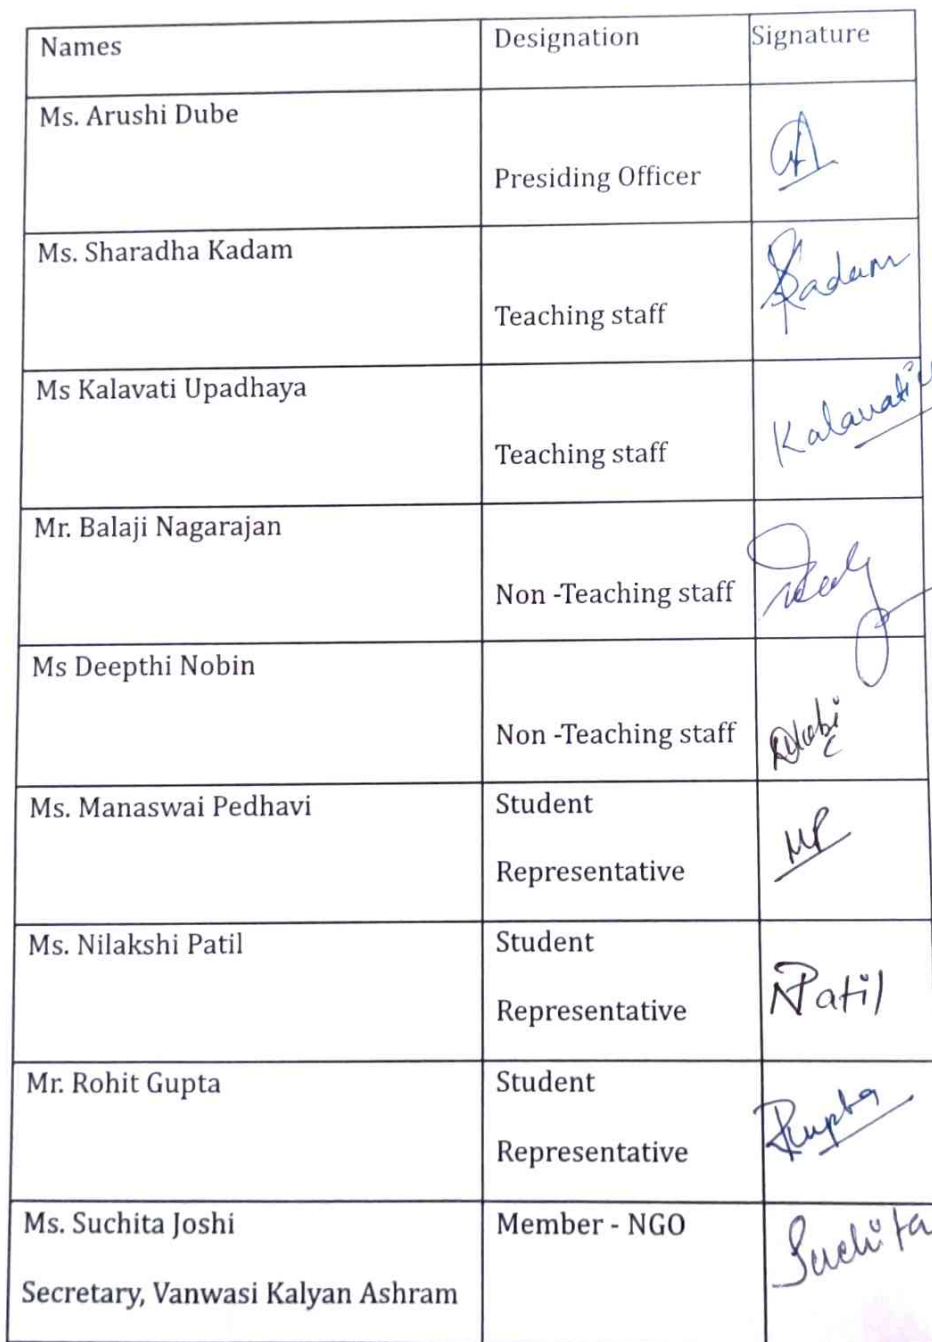 Names Designation Signature
Ms. Arushi Dube
Presiding Officer
Ms. Sharadha Kadam
Teaching staff Kadam
Ms Kalavati Upadhaya
Teaching staff Kalavati
Mr. Balaji Nagarajan
Non -Teaching staff
Ms Deepthi Nobin
Non -Teaching staff
Ms. Manaswai Pedhavi Student
Representative MP
Ms. Nilakshi Patil Student
Representative NPatil
Mr. Rohit Gupta Student
Representative RGupta
Ms. Suchita Joshi Member - NGO Suchita
Secretary, Vanwasi Kalyan Ashram